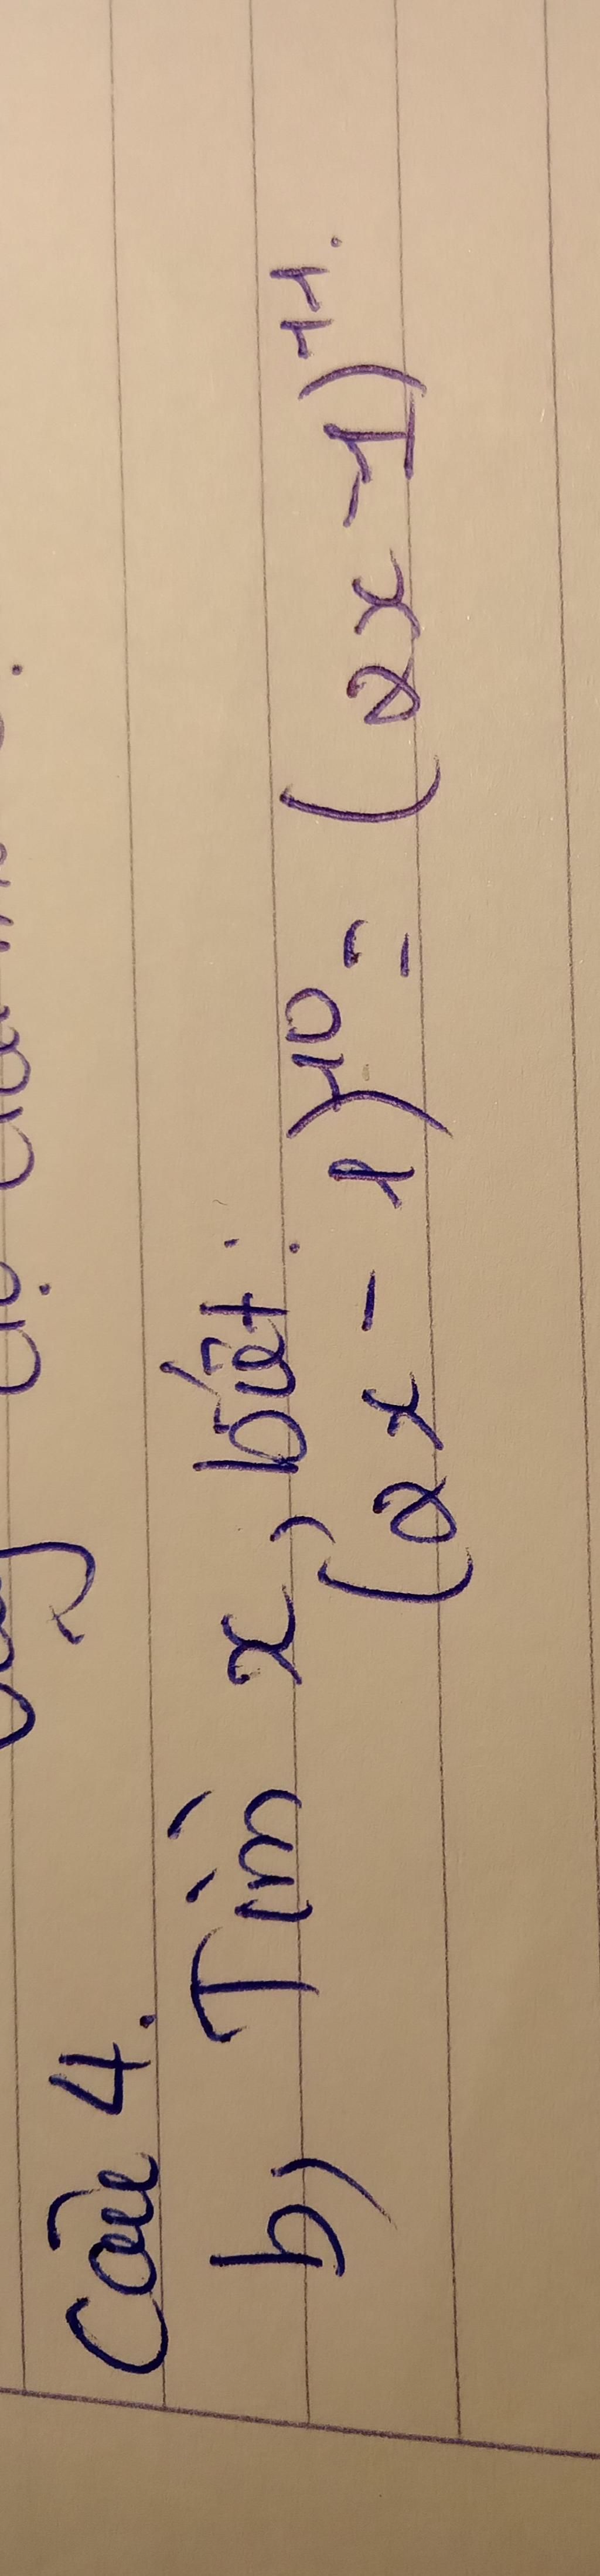 Câu 4.
b, Tìm x, biết:
(2x - 1)¹⁰ = (2x - 1)¹¹.